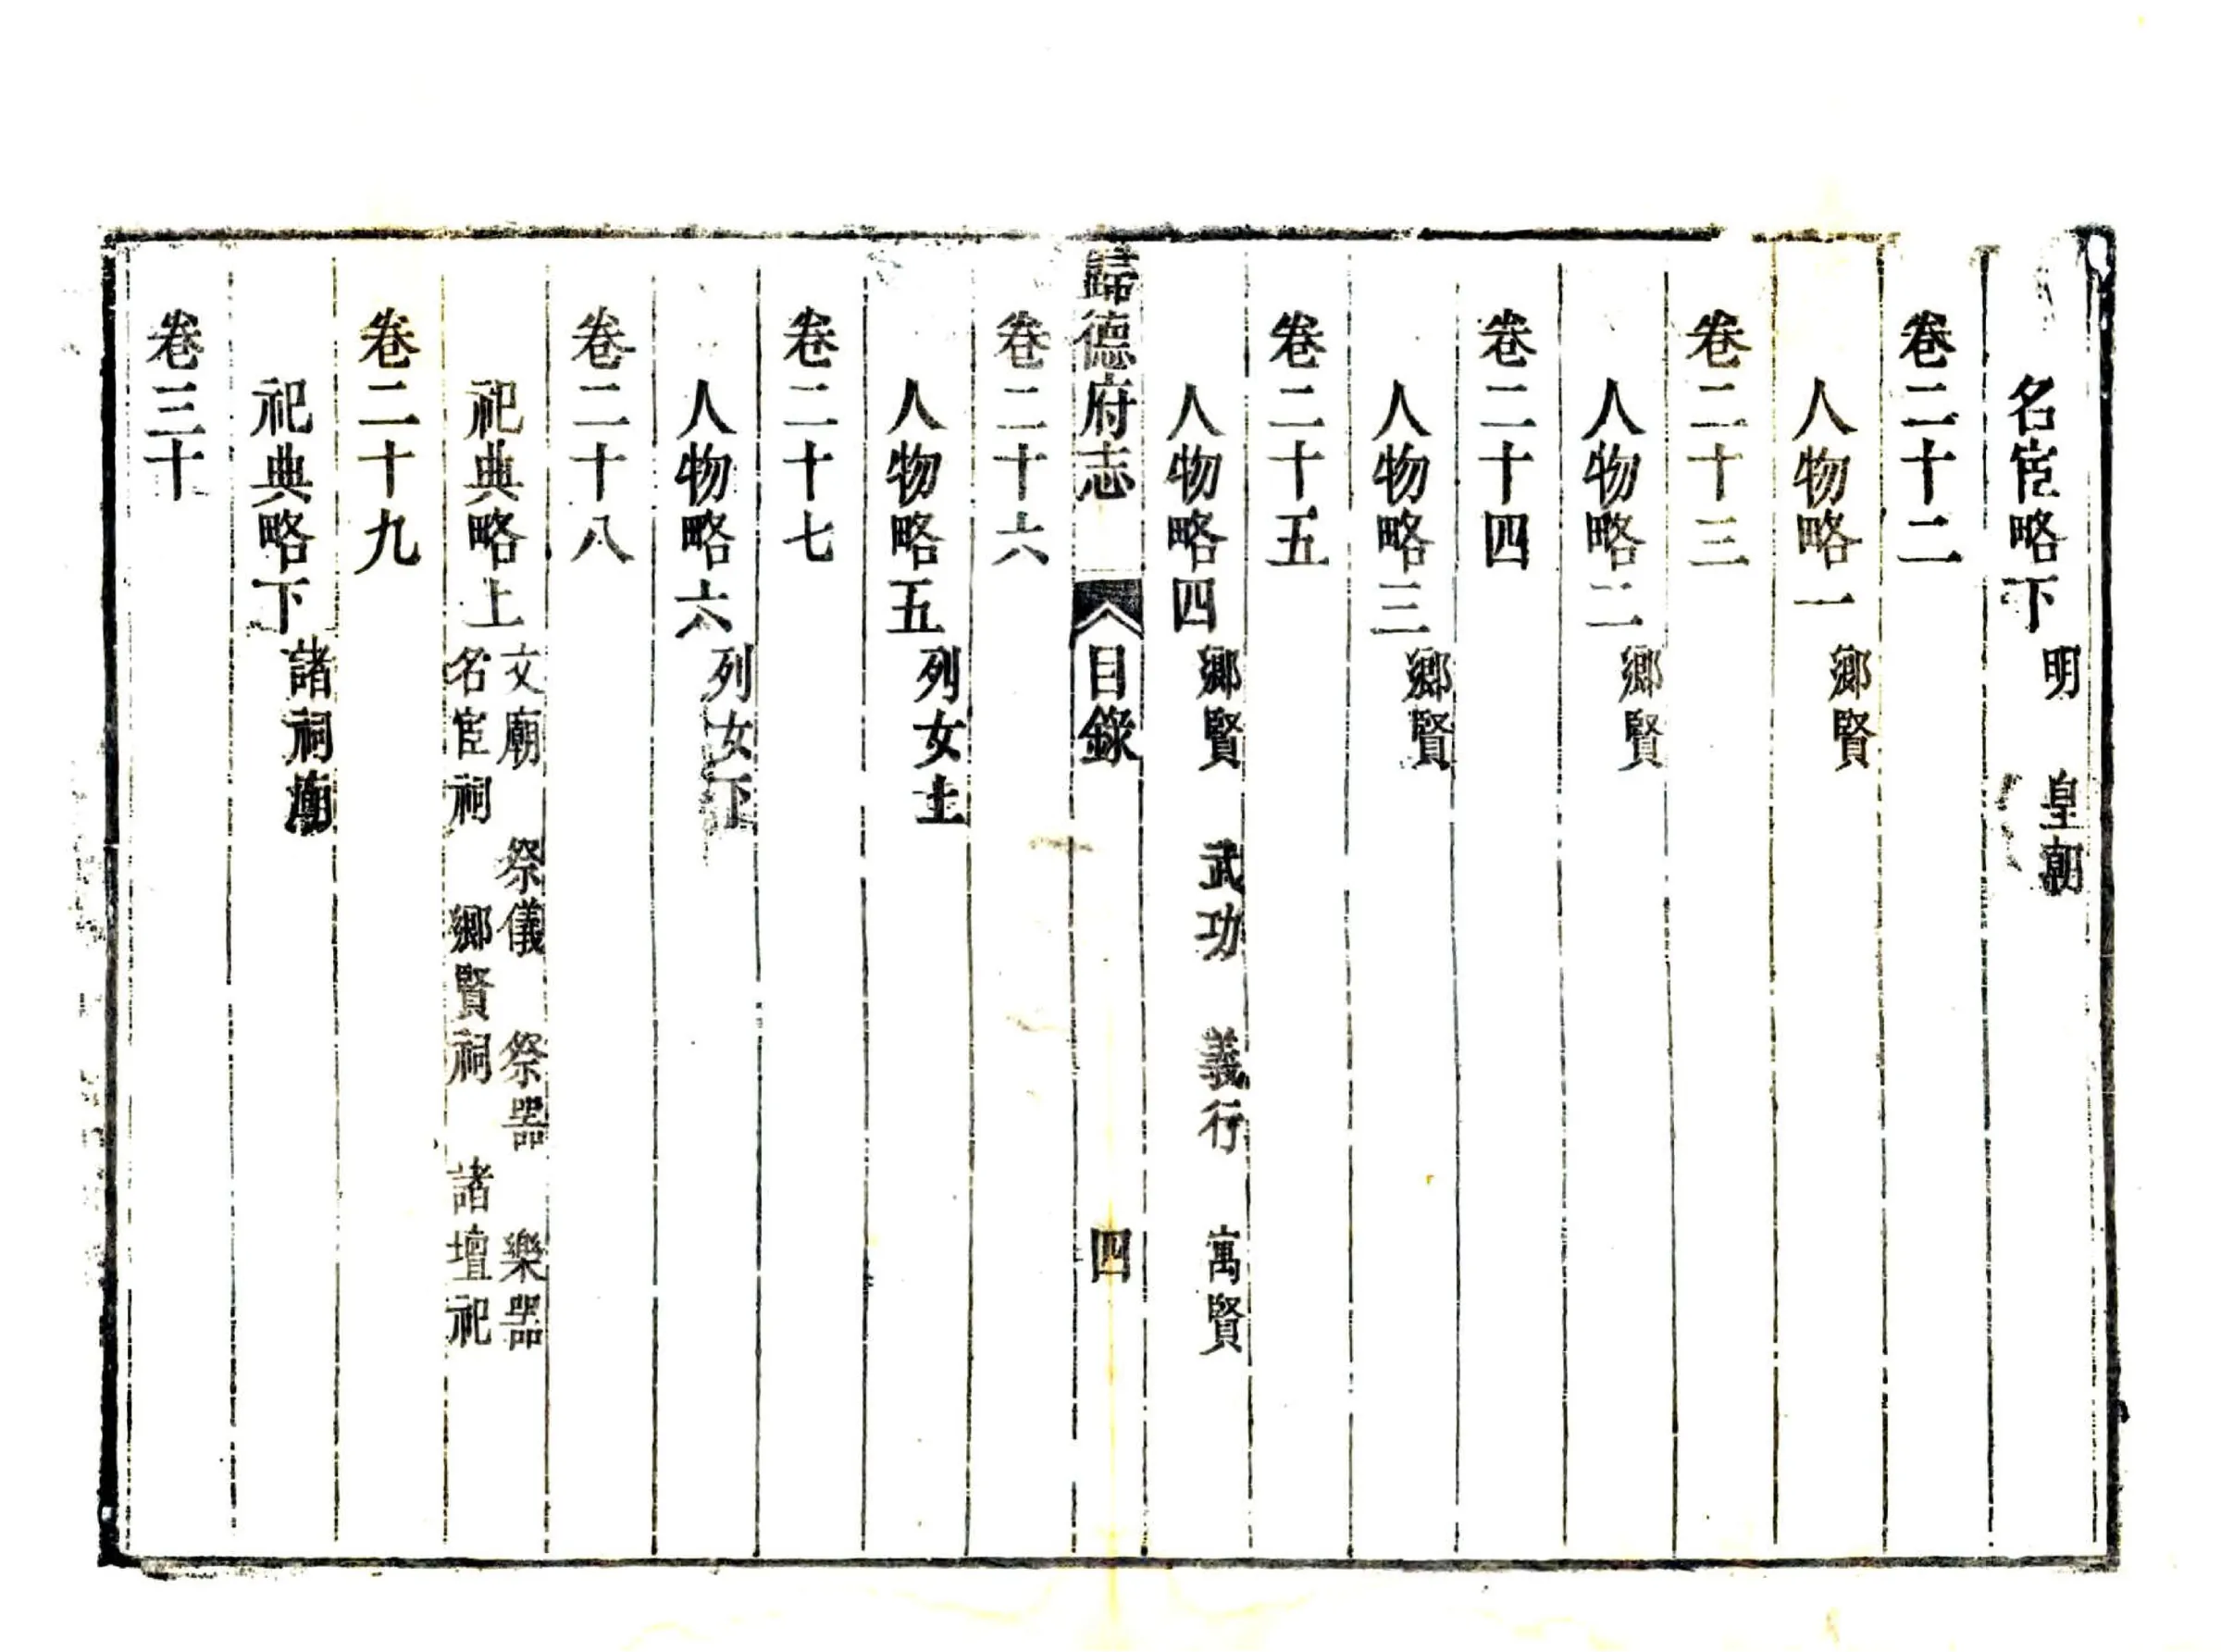 名宦略下 明 皇朝
卷二十二
人物略一 鄉賢
卷二十三
人物略二 鄉賢
卷二十四
人物略三 鄉賢
卷二十五
人物略四 鄉賢 武功 義行 寓賢
歸德府志 目錄 四
卷二十六
人物略五 列女上
卷二十七
人物略六 列女下
卷二十八
祀典略上 文廟 祭儀 祭器 樂器
名宦祠 鄉賢祠 諸壇祀
卷二十九
祀典略下 諸祠廟
卷三十